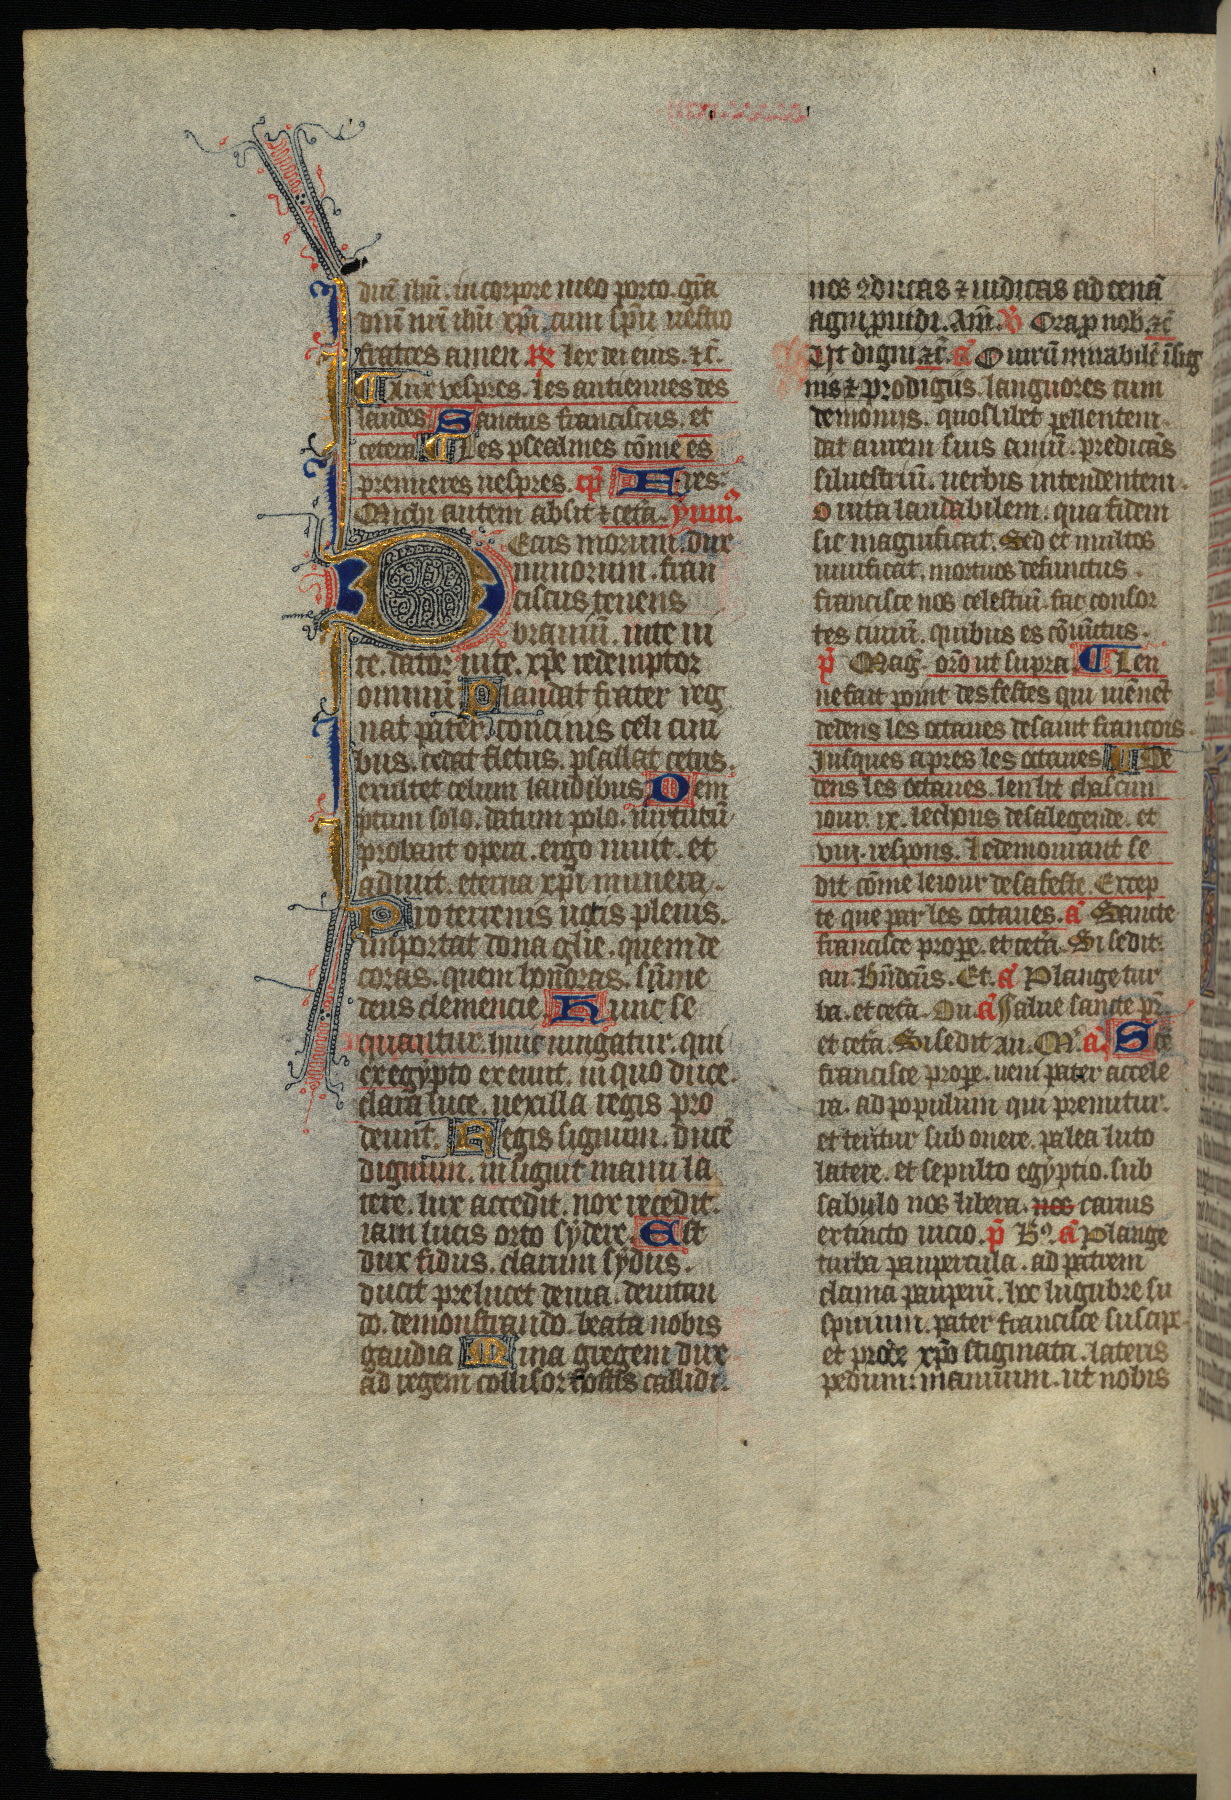 dnī ihū. in corpore meo porto. gr̄a
dnī nrī ihū xpī. cum spū uestro
fratres amen. R̃ lex dei eius. ⁊c̄.
¶ Aux vespres. les antiennes des
laudes Sanctus franciscus. et
cetera ¶ Les psealmes cōme es
premieres uespres. cp̄ Fres.
Michi autem absit ⁊ cetā. ymn̄.
Decus morum. dux
minorum. fran
ciscus tenens
brauiū. in te ui
te. dator uite. xpē redemptor
omniū Plaudat frater reg
nat pater. concinis celi ciui
bus. cedat fletus. psallat cetus.
exultet celum laudibus Dem
ptum solo. datum polo. uirtutū
probant opera. ergo uiuit. et
adiuit. eterna xpī munera.
Pro terrenis uotis plenis.
importat dona glīe. quem de
coras. quem honoras. sūme
deus clemencie. Hunc se
quantur. huic iungatur. qui
ex egypto exeunt. in quo duce.
clara luce. uexilla regis pro
deunt. Regis signum. ducē
dignum. insignit manu la
tere. lux accedit. nox recedit.
iam lucis orto sydere. Est
dux fidus. clarum sydus.
ducit prelucet deuia. deuitan
do. demonstrando. beata nobis
gaudia Mina gregem dux
ad regem collisor hostis callidi.
nos ꝯducas ⁊ inducas ad cenā
agni prouidi. Am̄. V̄ Ora p nob. ⁊c̄
Ut digni. ⁊c̄. a᷒ O uirū mirabilē ī sig
nis ⁊ prodigiis. languores cum
demoniis. quoslibet pellentem.
dat aurem suis auiū. predicās
siluestriū. uerbis intendentem.
o uita laudabilem. qua fidem
sic magnificat. Sed et multos
uiuificat. mortuos defunctus.
francisce nos celestiū. fac consor
tes ciuiū. quibus es cōiūctus.
p̄ Mag̃. orō ut supra. ¶ Len
ne fait point des festes qui uienēt
dedens les octaues de saint francois.
Iusques apres les octaues ¶ De
dens les octaues. len lit chascun
iour. ix. lechons de sa legende. et
viii. respons. Le demourant se
dit cōme le iour de sa feste. Excep
te que par les octaues. a᷒ Sancte
francisce prope. et cetā. Si se dit.
au b̄n̄dcūs. Et. a᷒ Plange tur
ba. et cetā. Ou a᷒ Salue sancte pr̄
et cetā. Si se dit au. M. a᷒. Scē
francisce prope. ueni pater accele
ra. ad populum qui premitur.
et teritur sub onere. palea luto
latere. et sepulto egyptio. sub
sabulo nos libera. nos carnis
extincto uicio. p̄ B̄9. a᷒ Plange
turba paupercula. ad patrem
clama pauperū. hoc lugubre su
spirium. pater francisce suscipe
et prode xpō stigmata. lateris
pedum. manuum. ut nobis